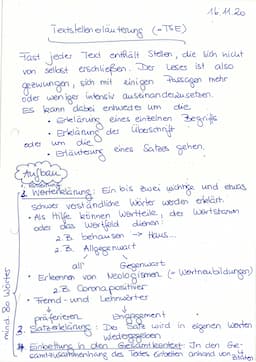 16.11.20
Textstellenerläuterung (=TSE)
Fast jeder Text enthält Stellen, die sich nicht
von selbst erschließen. Der Leser ist also
gezwungen, sich mit einigen Passagen mehr
oder weniger intensiv auseinanderzusetzen.
Es kann dabei entweder um die
• Erklärung eines einzelnen Begriffs
• Erklärung der Überschrift
oder um die
• Erläuterung eines Satzes gehen.
Aufbau:
1. Worterklärung: Ein bis zwei wichtige und etwas
schwer verständliche Wörter werden erklärt.
• Als Hilfe können Wortteile, der Wortstamm
oder das Wortfeld dienen:
z.B. behausen → Haus...
z.B. Allgegenwart
all Gegenwart
• Erkennen von Neologismen (= Wortneubildungen)
z.B. Coronapositiver
• Fremd- und Lehnwörter
präferieren Engagement
2. Satzerklärung: Der Satz wird in eigenen Worten
wiedergegeben
Einbettung in den Gesamtkontext: In den Ge-
samtzusammenhang des Textes einbetten anhand von
mind. 80 Wörter